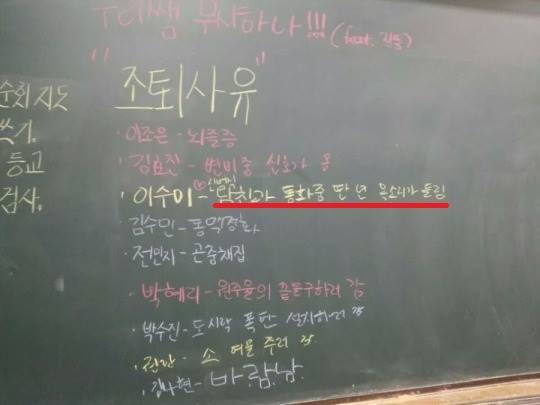 무사하나!!!
"조퇴사유"
순회지도
쓰기.
등교
검사.
·이조은 - 뇌졸증
·김효진 - 변비중 신호가 옴
·이수미♡ - 남친과 통화중 딴 년 목소리가 들림
·김수민 - 동맥경화
·전민지 - 곤충채집
·박혜리 - 원주율의 끝을구하러 감
·박수진 - 도시락 폭탄 설치하러 감
소 여물 주러 감
바람남